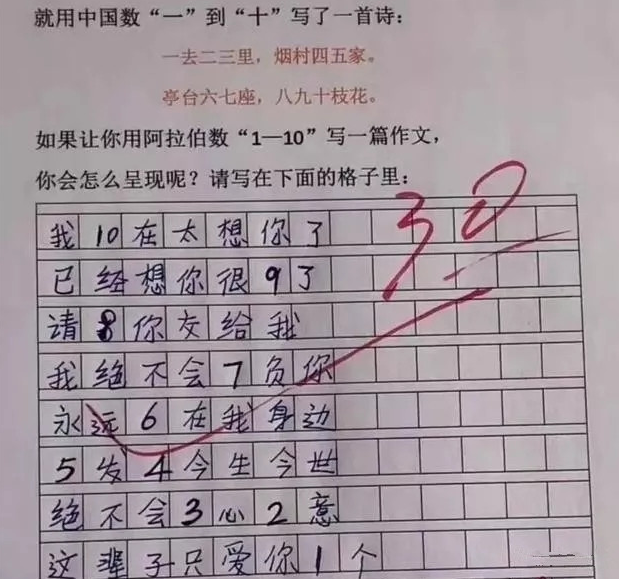 就用中国数“一”到“十”写了一首诗：
一去二三里，烟村四五家。
亭台六七座，八九十枝花。
如果让你用阿拉伯数“1—10”写一篇作文，
你会怎么呈现呢？请写在下面的格子里：
我10在太想你了
已经想你很9了
请8你交给我
我绝不会7负你
永远6在我身边
5发4今生今世
绝不会3心2意
这辈子只爱你1个